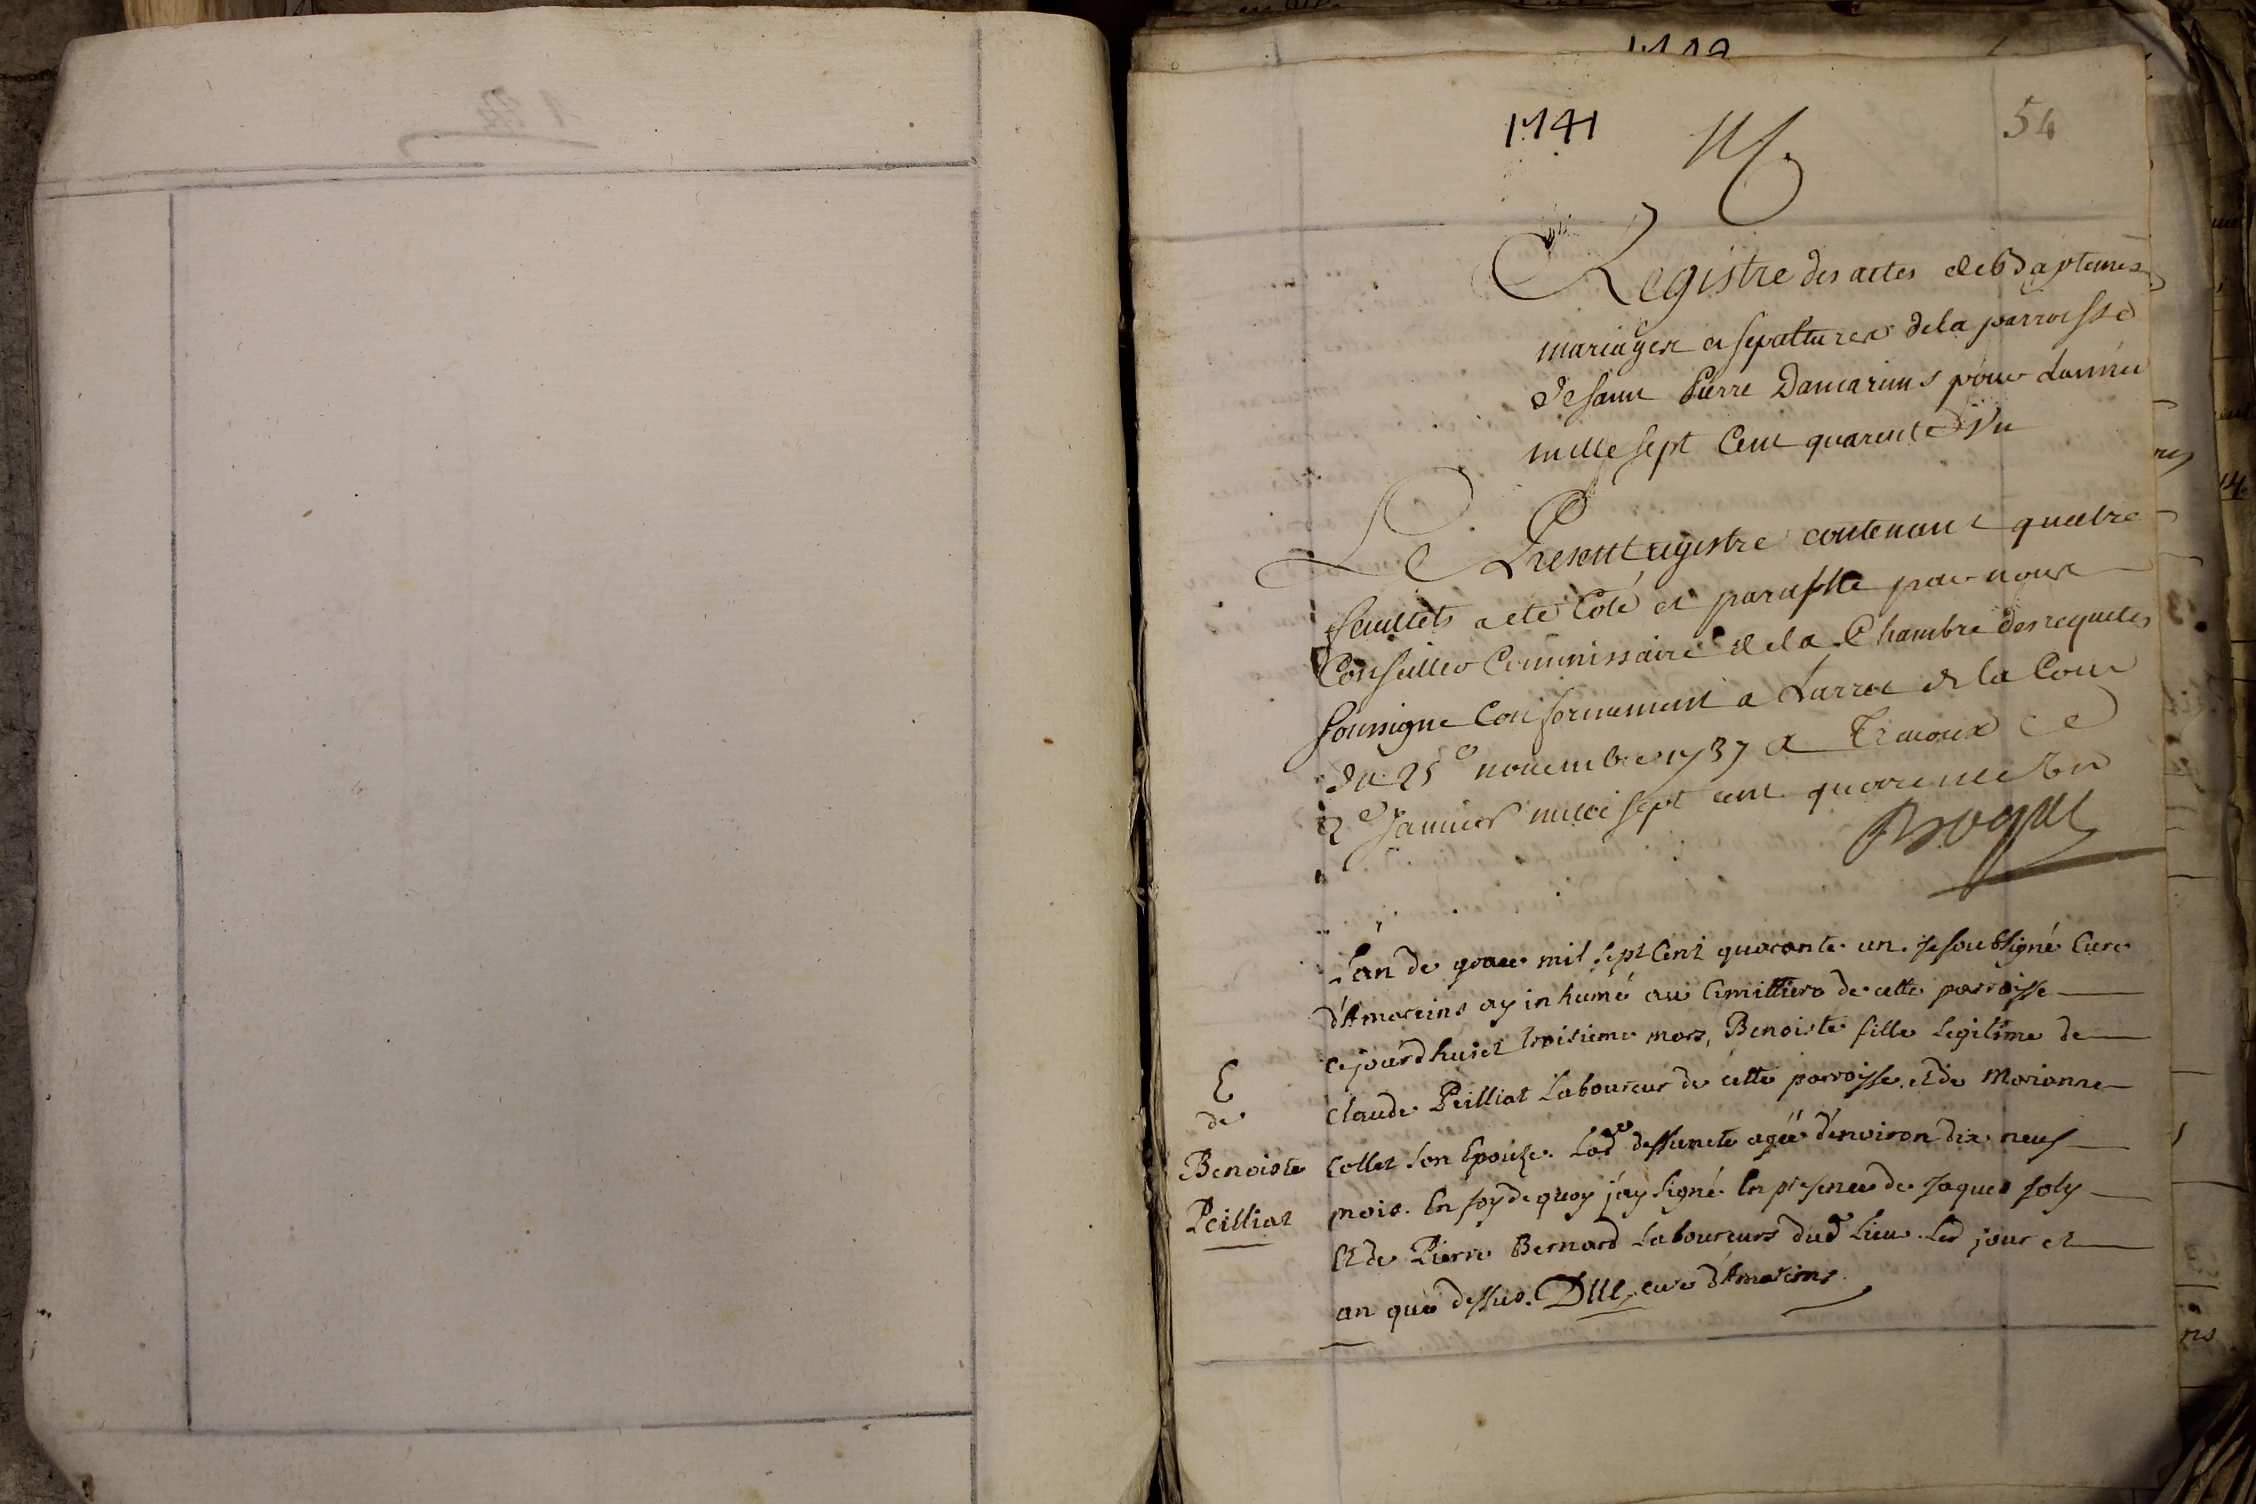 1741
54
Registre des actes de Baptemes
mariages et sepultures de la parroisse
de saint Pierre Damareins pour Lannée
mille sept Cent quarente Vn
Le Present registre contenant quatre
feuillets a eté Coté et paraphé par nous
Conseiller Commissaire de la Chambre des requetes
soussigne Conformement a Larret de la Cour
du 25e novembre 1737 a Trevoux Ce
2e Janvier mille sept cent quarente Vn
L'an de grace mil sept Cent quarante un. je soubsigné Curé
d'Amareins ay inhumé au Cimittiere de cette parroisse
cejourd'huiet troisieme mars, Benoiste fille Legitime de
Claude Peilliat Laboureur de cette parroisse, et de Marianne
Collet son Epouse. Lade deffuncte agée d'environ dix neuf
mois. En foy de quoy j'ay signé En presence de Jaques Joly
Et de Pierre Bernard Laboureurs dud Lieu. Led jour et
an que dessus. curé d'Amareins
E
de
Benoiste
Peilliat